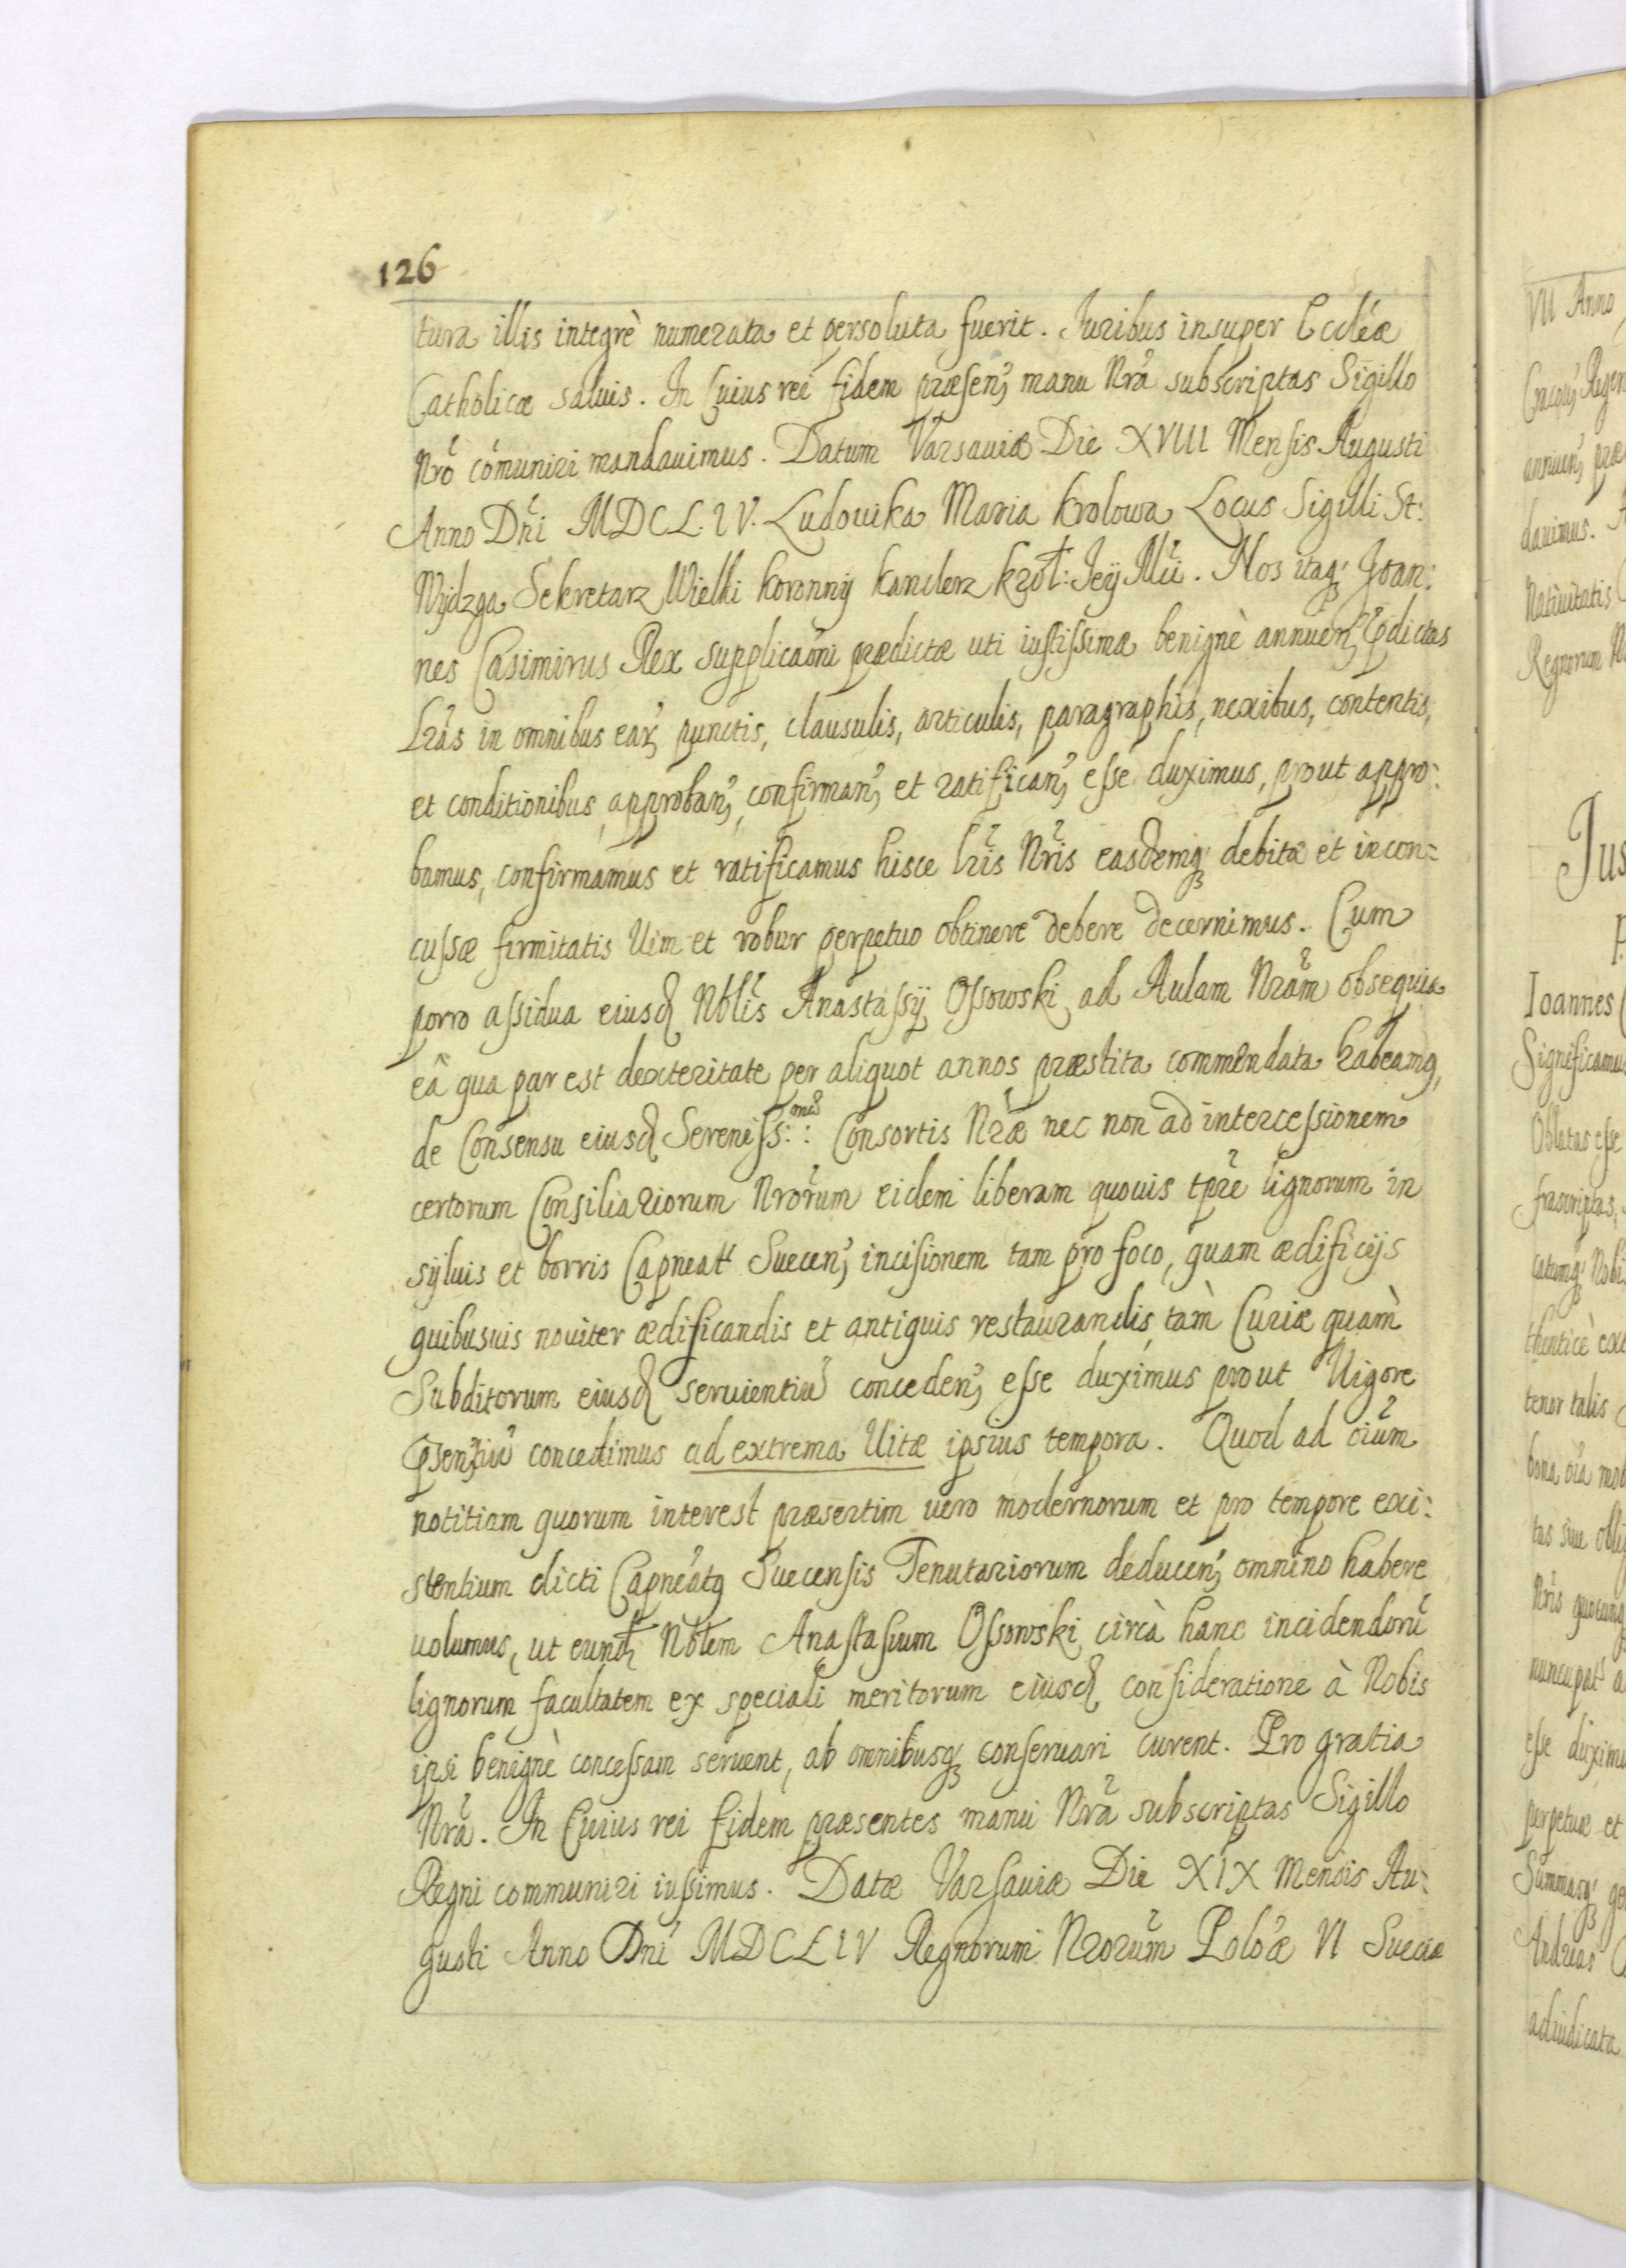 126
tura illis integrè numerata et persoluta fuerit. Juribus insuper Eccl̃iæ
Catholicæ saluis. In Cuius rei fidem præsenꝫ manu Nrã subscriptas Sigillo
Nrõ cõmuniri mandauimus. Datum Varsauiæ Die XVIII Mensis Augusti
Anno Dñi MDCL.IV. Ludouika Maria krolowa Locus Sigilli St:
Wydzga Sekretarz Wielki koronny kanclerz krol: Jeÿ Mci. Nos itaqꝫ Joan:
nes Casimirus Rex supplicaõni prædictæ uti iustissimæ benignè annuenꝫ p̃dictas
Lrãs in omnibus earꝫ punctis, clausulis, articulis, paragraphis, nexibus, contentis,
et conditionibus approbanꝫ, confirmanꝫ et ratificanꝫ esse duximus, prout appro:
bamus, confirmamus et ratificamus hisce lrĩs Nrĩs easdemqꝫ debitæ et incon:
cussæ firmitatis Uim et robur perpetuo obtinere debere decernimus. Cum
porro assidua eiusd Nbl̃is Anastasÿ Ossowski ad Aulam Nrãm obsequia
eâ qua par est dexteritate per aliquot annos præstita commendata habeamq,
de Consensu eiusd Sereniss:mæ: Consortis Nræ̃ nec non ad intercessionem
certorum Consiliariorum Nrõrum eidem liberam quouis tp̃re lignorum in
syluis et borris Capneat Suecenꝫ incisionem tam pro foco, quam ædificijs
quibusuis nouiter ædificandis et antiquis restaurandis tàm Curiæ quàm
Subditorum eiusd seruientiũ concedenꝫ esse duximus prout Uigore
p̃sentiũ concedimus ad extrema Uitæ ipsius tempora. Quod ad oĩum
notitiam quorum interest præsertim uero modernorum et pro tempore exi:
stentium dicti Capneatq Suecensis Tenutariorum deducenꝫ omnino habere
uolumus, ut eund Nobl̃em Anastasium Ossowski circà hanc incidendorũ
lignorum facultatem ex speciali meritorum eiusd consideratione à Nobis
ipsi benignè concessam seruent, ab omnibusqꝫ conseruari curent. Pro gratia
Nrã. In Cuius rei fidem præsentes manu Nrã subscriptas Sigillo
Regni communiri iussimus. Datæ Varsauiæ Die XIX Mensis Au:
gusti Anno Dñi MDCLIV Regnorum Nrõrum Polõæ VI Sueciæ
VII Anno
dauimus.
Natiuitatis
Regnorum
Jus
Ioannes
Significamus
Oblatas esse
tenor talis
esse duximus
perpetuæ et
Andreas
adiudicata